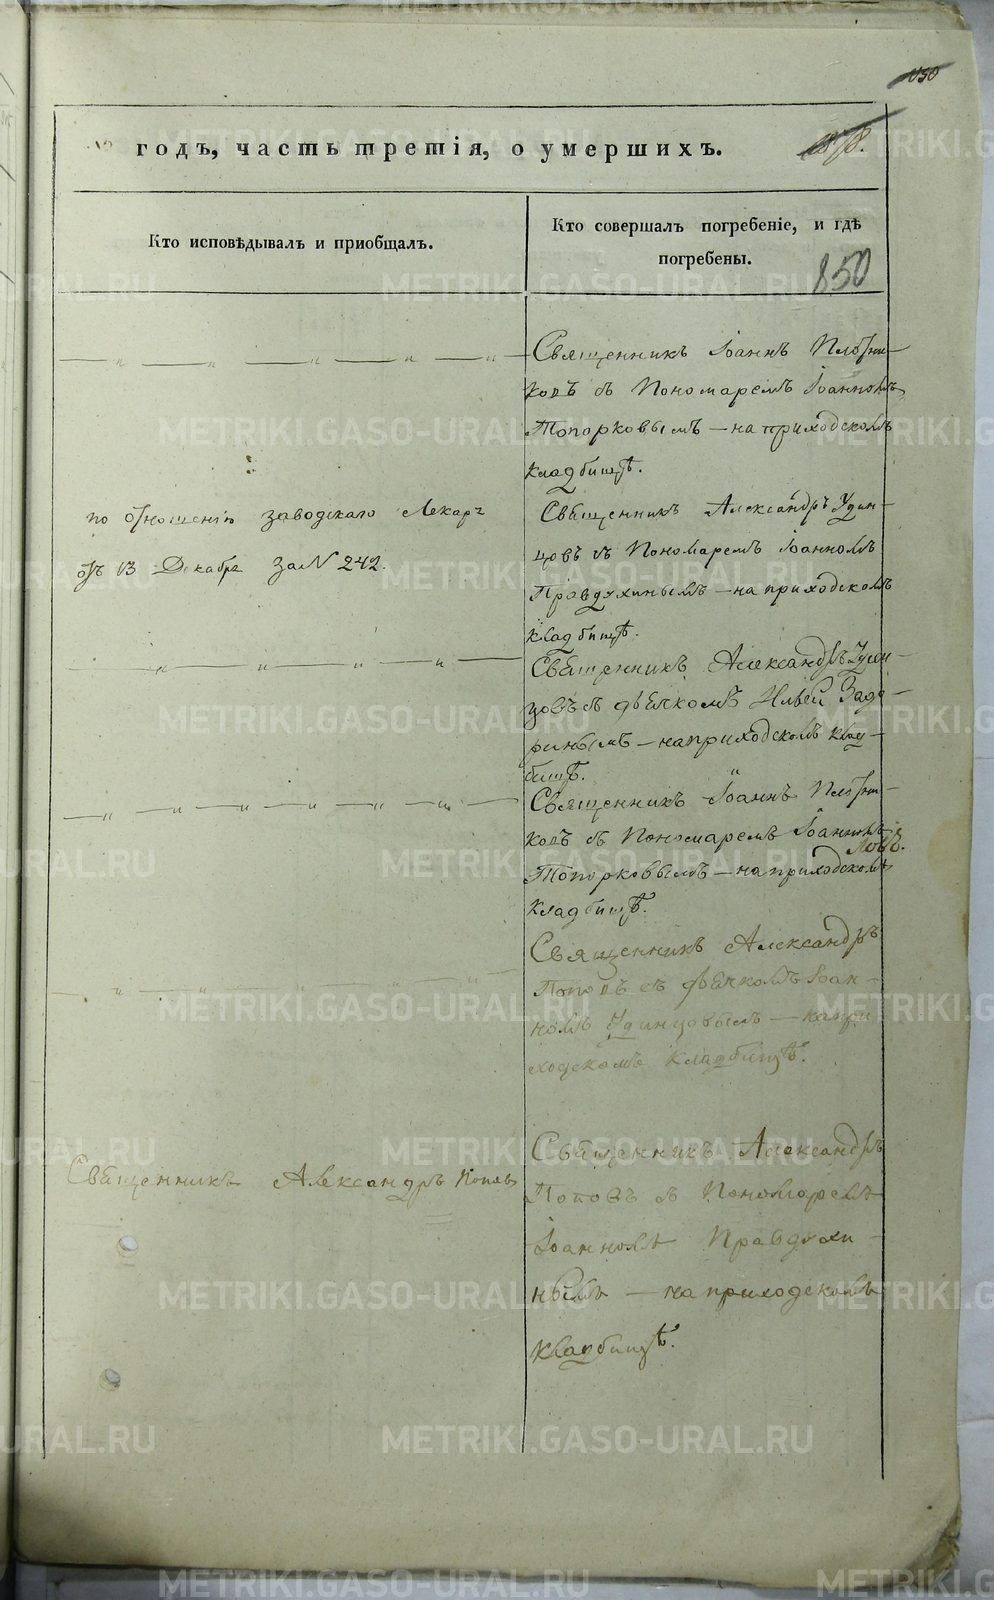 годъ, часть третія, о умершихъ.
Кто исповѣдывалъ и пріобщалъ.
Кто совершалъ погребеніе, и гдѣ
погребены.
850
Священникъ Іоаннъ Плотни-
ковъ съ Пономаремъ Іоанномъ
Топорковымъ — на приходскомъ
кладбищѣ.
по отношенію заводскаго Лекаря
отъ 13 Декабря за N 242.
Священникъ Александръ Удин-
цовъ съ Пономаремъ Іоанномъ
Правдухинымъ — на приходскомъ
кладбищѣ.
Священникъ Александръ Удин-
цовъ съ дьячкомъ Ильей Заде-
ринымъ — на приходскомъ клад-
бищѣ.
Священникъ Іоаннъ Плотни-
ковъ съ Пономаремъ Іоанномъ
Топорковымъ — на приходскомъ
кладбищѣ.
Священникъ Александръ
Поповъ съ дьячкомъ Іоан-
номъ Удинцовымъ — на при-
ходскомъ кладбищѣ.
Священникъ Александръ Поповъ
Священникъ Александръ
Поповъ съ Пономаремъ
Іоанномъ Правдухи-
нымъ — на приходскомъ
кладбищѣ.
METRIKI.GASO-URAL.RU